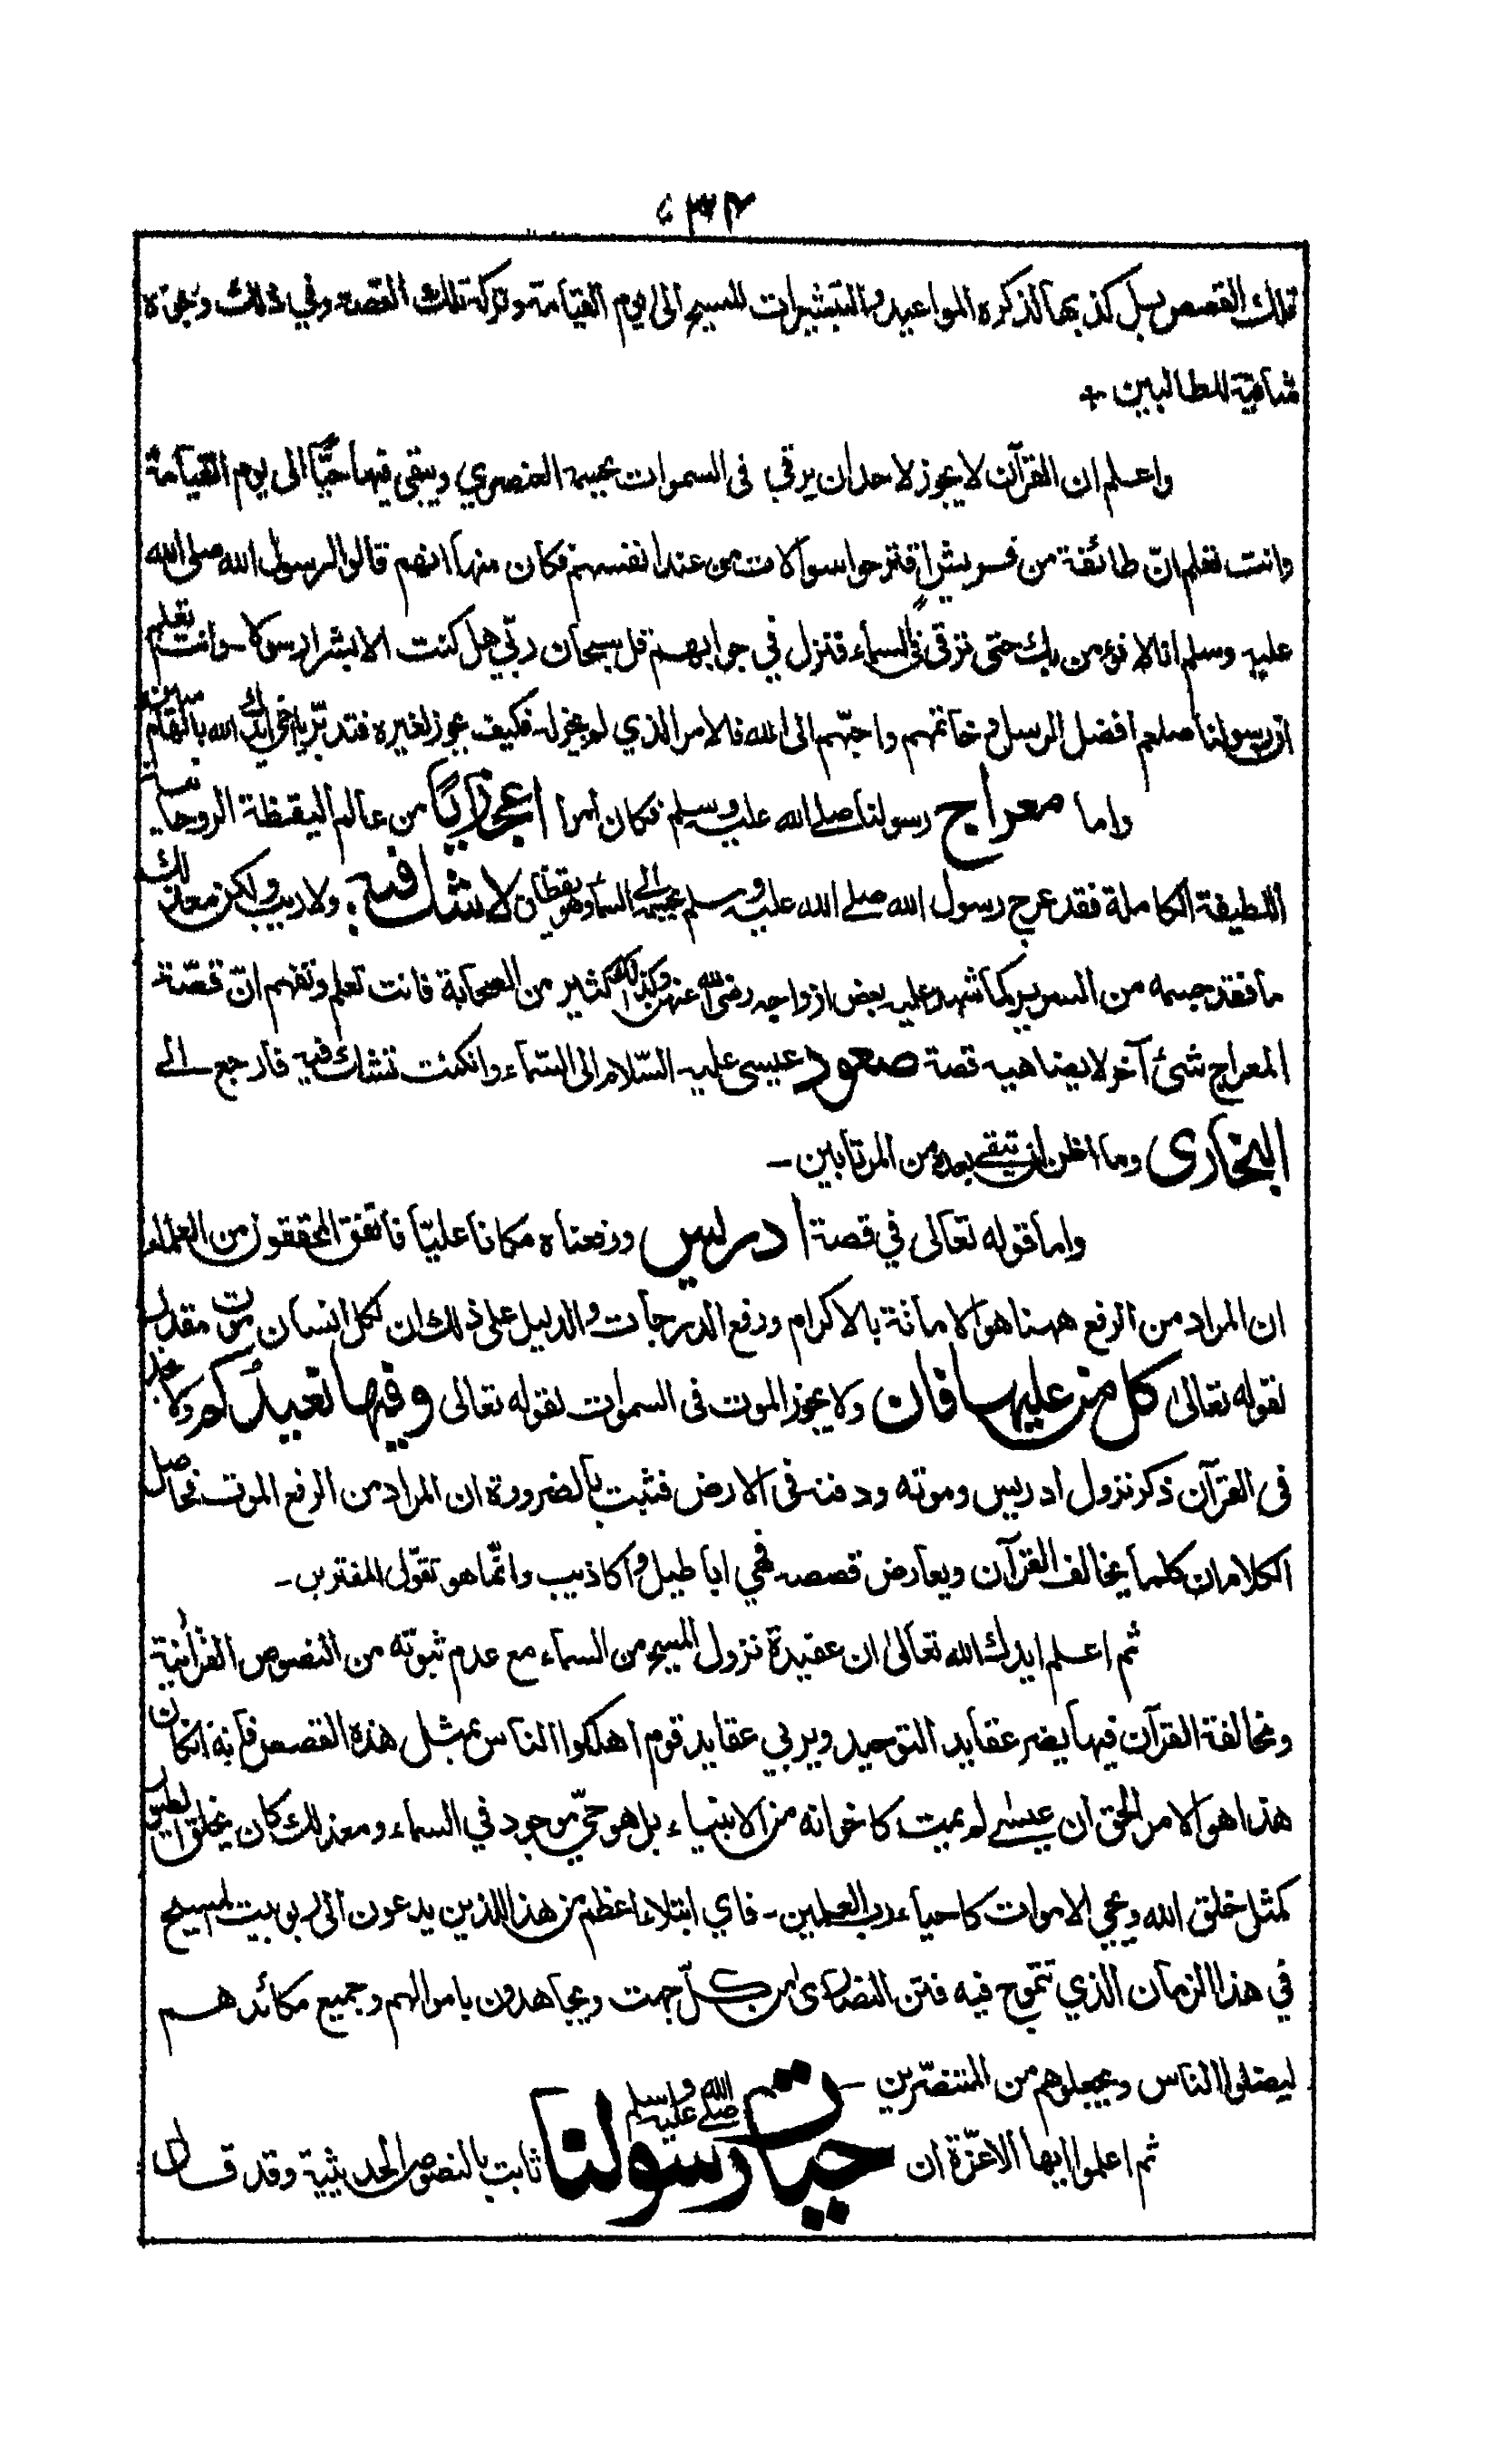 ۳۴
تلك القصص بل كذبها لذكره المواعيد والتبشيرات للمسيح الى يوم القيامة وتركه تلك القصة وفي ذلك وجوه
شافية للطالبين +
واعلم ان القرآن لا يجوز لاحد ان يرقى فى السموات بجسمه العنصري ويبقى فيها حيًّا الى يوم القيامة
وانت تعلم انّ طائفة من قريش اقترحوا سوالات من عند انفسهم فكان منها انهم قالوا لرسول الله صلى الله
عليه وسلم انا لا نؤمن بك حتى ترقى فى السماء فنزل في جوابهم قل سبحان ربّي هل كنت الا بشرا رسولا - وانت تعلم
ان رسولنا صلعم افضل الرسل وخاتمهم واحبّهم الى الله فالامر الذي لم يجز له فكيف يجوز لغيره فتدبّر يا اخي ايدك الله بالهام مبين
واما معراج رسولنا صلے الله عليه وسلم فكان امرا اعجازيًا من عالم اليقظة الروحانية
اللطيفة الكاملة فقد عرج رسول الله صلے الله عليه وسلم بجسمه الى السماء وهو يقظان لا شك فيه ولا ريب ولكن مع ذلك
ما فقد جسمه من السرير كما شهد عليه بعض ازواجه رضى الله عنهن وكذلك كثير من الصحابة فانت تعلم وتفهم انّ قصّة
المعراج شئ آخر لا يضاهيه قصة صعود عيسى عليه السّلام الى السّماء وان كنت تشك فيه فارجع الے
البخارى وما اظن ان تبقى بعده من المرتابين -
واما قوله تعالى في قصة ادريس ورفعناه مكانا عليّا فاتفق المحققون من العلماء
ان المراد من الرفع ههنا هو الاماتة بالاكرام ورفع الدرجات والدليل على ذلك ان لكل انسان موت مقدر
لقوله تعالى كل من عليها فان ولا يجوز الموت فى السموات لقوله تعالى وفيها نعيدكم ولا نجد
فى القرآن ذكر نزول ادريس وموته ودفنه فى الارض فثبت بالضرورة ان المراد من الرفع الموت فحاصل
الكلام ان كلما يخالف القرآن ويعارض قصصه فهي اباطيل واكاذيب وانّما هو تقوّل المفترين -
ثم اعلم ايدك الله تعالى ان عقيدة نزول المسيح من السماء مع عدم ثبوته من النصوص القرآنية
ومخالفة القرآن فيها يضر عقايد التوحيد ويربي عقايد قوم اهلكوا الناس بمثل هذه القصص فانه ان كان
هذا هو الامر الحق ان عيسى لم يمت كاخوانه من الانبياء بل هو حيّ موجود في السماء ومع ذلك كان يخلق الطيور
كمثل خلق الله ويحي الاموات كاحياء رب العلمين - فاي ابتلاء اعظم من هذا للذين يدعون الى ربوبيت المسيح
في هذا الزمان الذي تتموج فيه فتن النصارى من كلّ جهت ويجاهدون باموالهم وجميع مكائدهم
ليضلوا الناس ويجعلوهم من المتنصّرين -
ثم اعلموا ايها الاعزّة ان حيات رسولنا صلے الله عليه وسلم ثابت بالنصوص الحديثية وقد قال